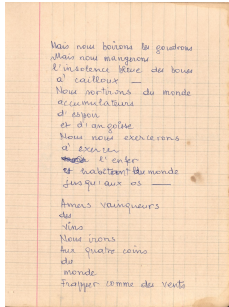 Mais nous boirons les goudrons
Mais nous mangerons
l'insolence bleue des boues
à cailloux —
Nous sortirons du monde
accumulateurs
d'espoir
et d'angoisse
Nous nous exercerons
à exercer
l'enfer
et habiterons le monde
jusqu'aux os —
Amers vainqueurs
des
vins
Nous irons
Aux quatre coins
du
monde
Frapper comme du vent